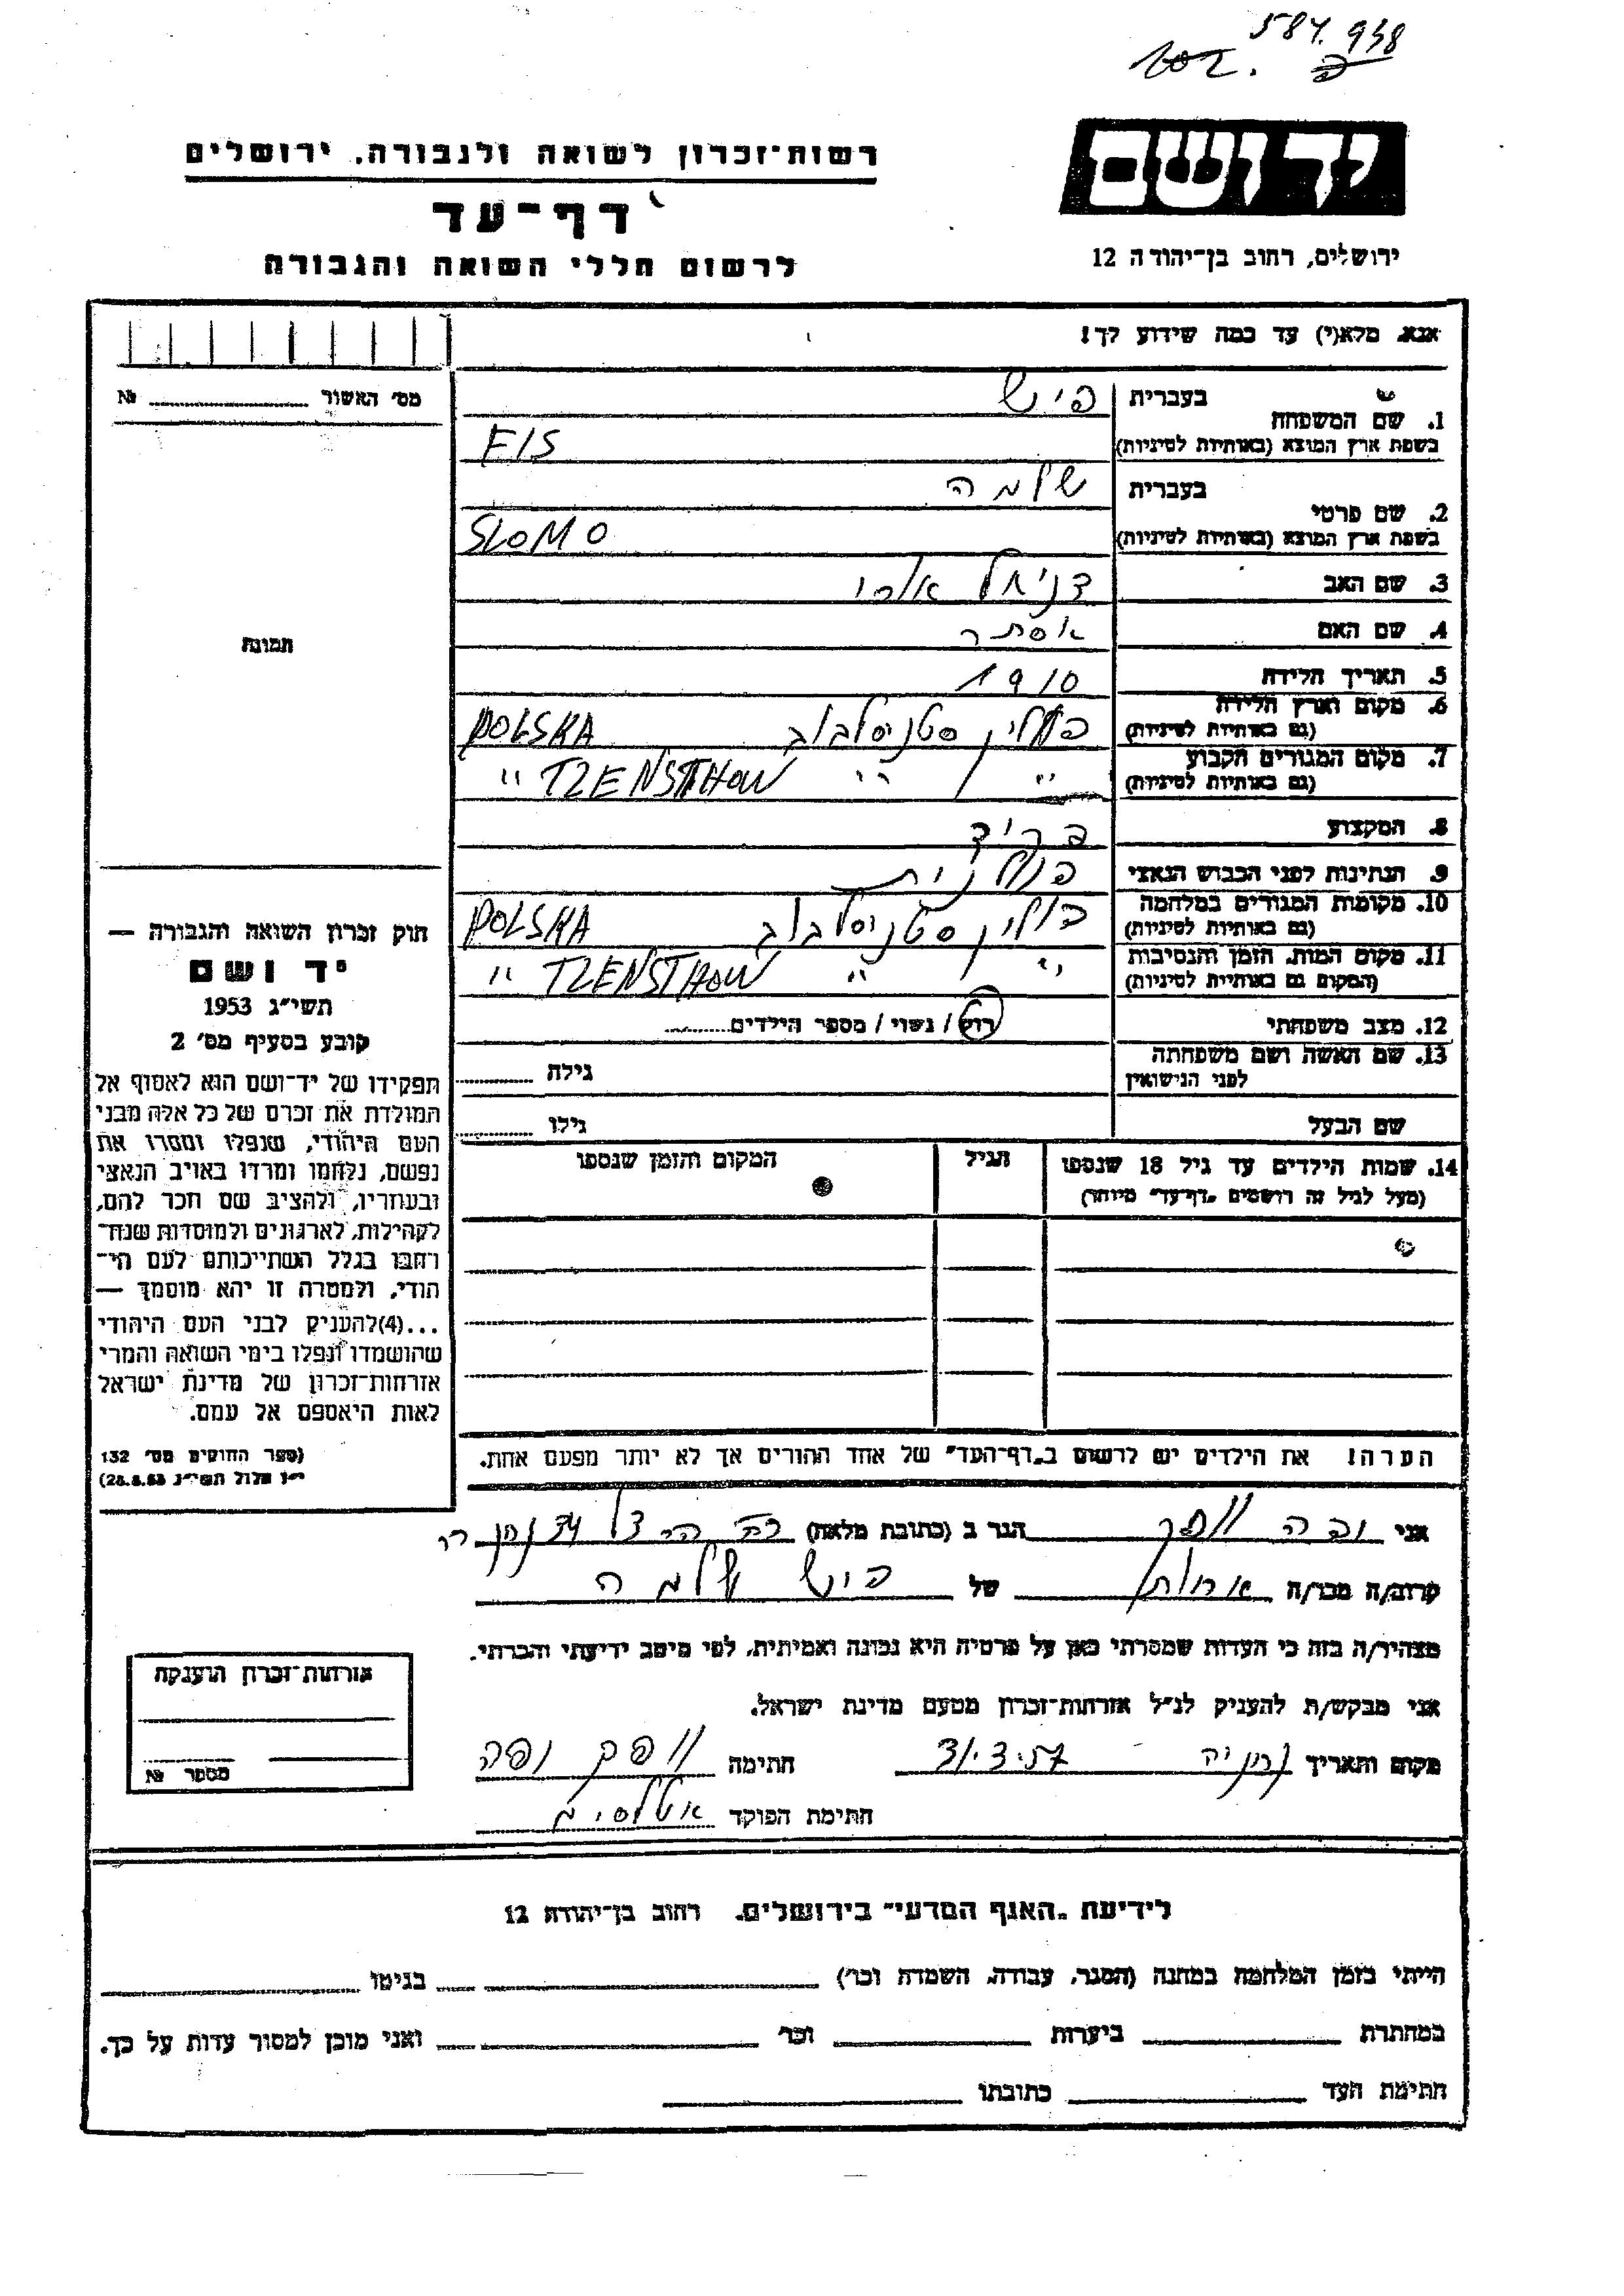 584.938
יד ושם
רשות-זכרון לשואה ולגבורה, ירושלים
דף-עד
ירושלים, רחוב בן-יהודה 12
לרשום חללי השואה והגבורה
אנא, מלא(י) עד כמה שידוע לך!
מס' האשור №
בעברית פיש
1. שם המשפחה
בשפת ארץ המוצא (באותיות לטיניות) FIS
בעברית שלמה
2. שם פרטי
בשפת ארץ המוצא (באותיות לטיניות) SLOMO
3. שם האב דניאל
4. שם האם אסתר
תמונה
5. תאריך הלידה 1910
6. מקום וארץ הלידה
(גם באותיות לטיניות) פולין סטניסלבוב POLSKA
7. מקום המגורים הקבוע
(גם באותיות לטיניות) " " TZENSTHOW "
8. המקצוע פקיד
9. הנתינות לפני הכבוש הנאצי פולנית
10. מקומות המגורים במלחמה
(גם באותיות לטיניות) פולין סטניסלבוב POLSKA
11. מקום המות, הזמן והנסיבות
(המקום גם באותיות לטיניות) " " TZENSTHOW "
12. מצב משפחתי רוק / נשוי / מספר הילדים
13. שם האשה ושם משפחתה
לפני הנישואין גילה
שם הבעל גילו
14. שמות הילדים עד גיל 18 שנספו הגיל המקום והזמן שנספו
(מעל לגיל זה רושמים "דף-עד" מיוחד)
הערה! את הילדים יש לרשום ב"דף-העד" של אחד ההורים אך לא יותר מפעם אחת.
חוק זכרון השואה והגבורה —
יד ושם
תשי"ג 1953
קובע בסעיף מס' 2
תפקידו של יד-ושם הוא לאסוף אל
המולדת את זכרם של כל אלה מבני
העם היהודי, שנפלו ומסרו את
נפשם, נלחמו ומרדו באויב הנאצי
ובעוזריו, ולהציב שם וזכר להם,
לקהילות, לארגונים ולמוסדות שנח-
רחבו בגלל השתייכותם לעם הי-
הודי, ולמטרה זו יהא מוסמך —
...(4)להעניק לבני העם היהודי
שהושמדו ונפלו בימי השואה והמרי
אזרחות-זכרון של מדינת ישראל
לאות היאספם אל עמם.
(ספר החוקים מס' 132
י"ז אלול תשי"ג 28.8.53)
אני הגר ב (כתובת מלאה)
קרוב/ה מכר/ה אחות של פיש שלמה
מצהיר/ה בזה כי העדות שמסרתי כאן על פרטיה היא נכונה ואמיתית, לפי מיטב ידיעתי והכרתי.
אני מבקש/ת להעניק לנ"ל אזרחות-זכרון מטעם מדינת ישראל.
מקום ותאריך נתניה 31.3.57 חתימה
חתימת הפוקד
אזרחות-זכרון הוענקה
מספר №
לידיעת "האגף המדעי" בירושלים, רחוב בן-יהודה 12
הייתי בזמן המלחמה במחנה (הסגר, עבודה, השמדה וכו') בגיטו
במחתרת ביערות וכו' ואני מוכן למסור עדות על כך.
חתימת העד כתובתו